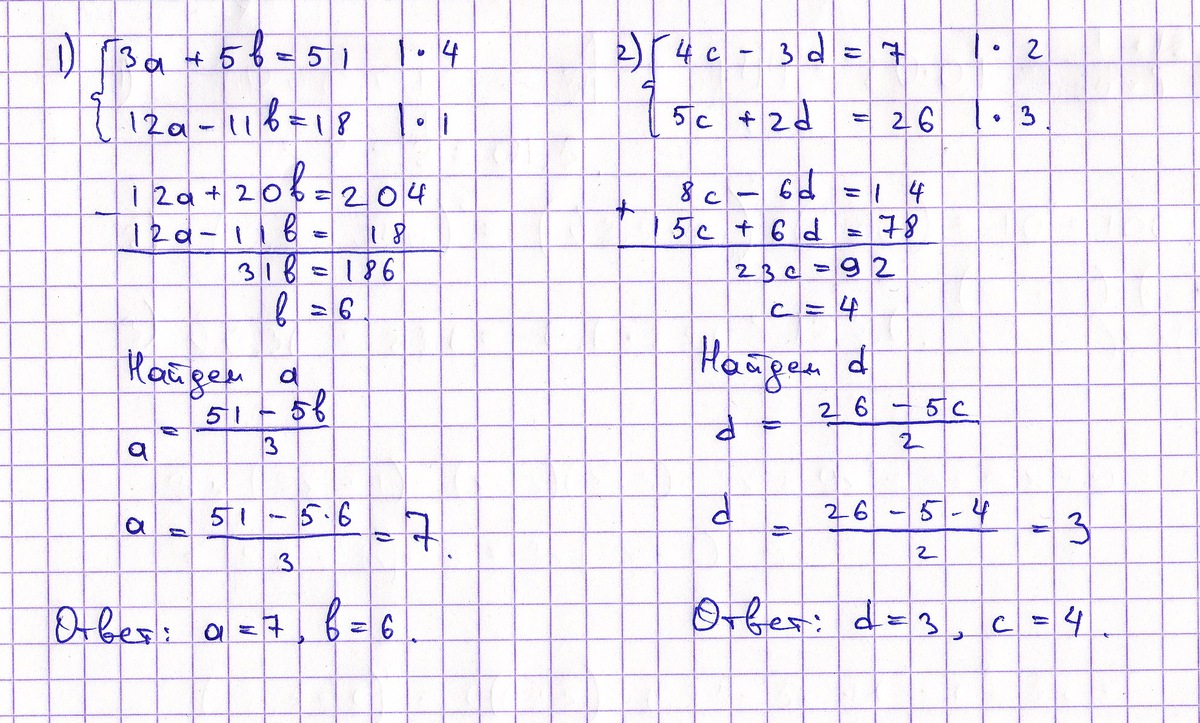 1) { 3a + 5b = 51 | · 4
12a - 11b = 18 | · 1
12a + 20b = 204
-
12a - 11b = 18
31b = 186
b = 6.
Найдем a
a = (51 - 5b) / 3
a = (51 - 5·6) / 3 = 7.
Ответ: a = 7, b = 6.
2) { 4c - 3d = 7 | · 2
5c + 2d = 26 | · 3.
8c - 6d = 14
+
15c + 6d = 78
23c = 92
c = 4
Найдем d
d = (26 - 5c) / 2
d = (26 - 5 - 4) / 2 = 3
Ответ: d = 3, c = 4.